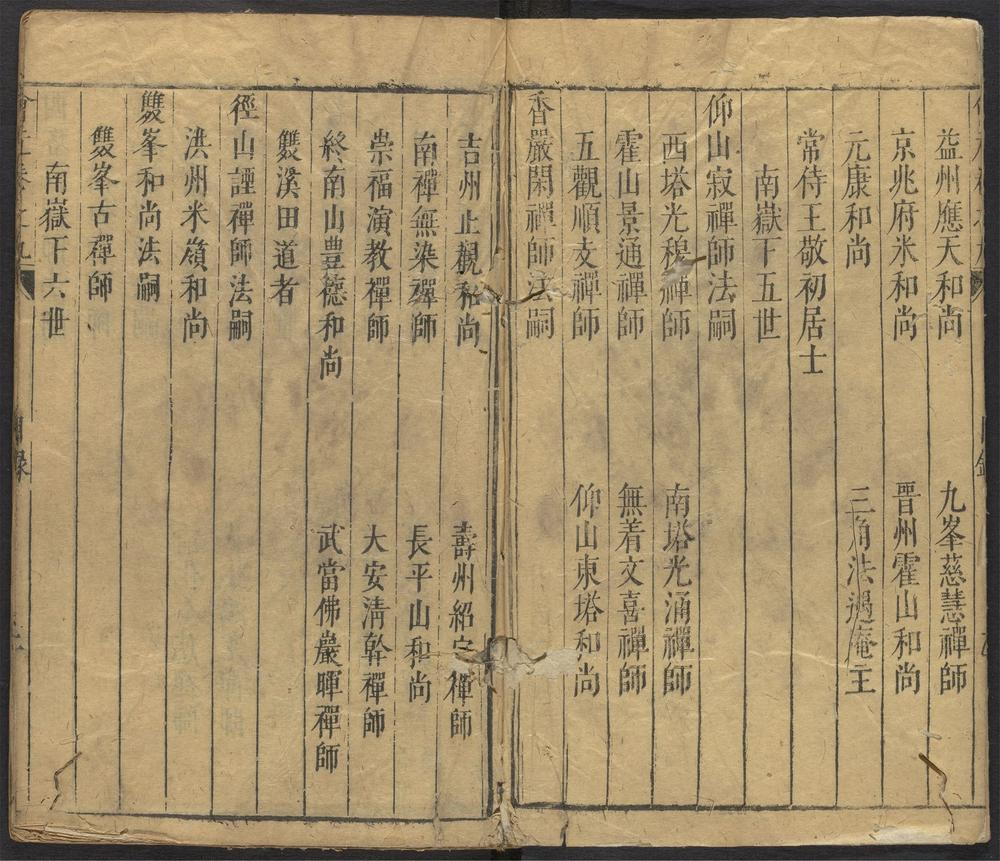 益州應天和尚　九峯慈慧禪師
京兆府米和尚　晉州霍山和尚
元康和尚　三角法遇庵主
常侍王敬初居士
南嶽下五世
仰山寂禪師法嗣
西塔光穆禪師　南塔光涌禪師
霍山景通禪師　無着文喜禪師
五觀順支禪師　仰山東塔和尚
香嚴閑禪師法嗣
吉州止觀和尚　壽州紹宗禪師
南禪無染禪師　長平山和尚
崇福演教禪師　大安淸幹禪師
終南山豊德和尚　武當佛巖暉禪師
雙溪田道者
徑山諲禪師法嗣
洪州米嶺和尚
雙峯和尚法嗣
雙峯古禪師
南嶽下六世
目錄